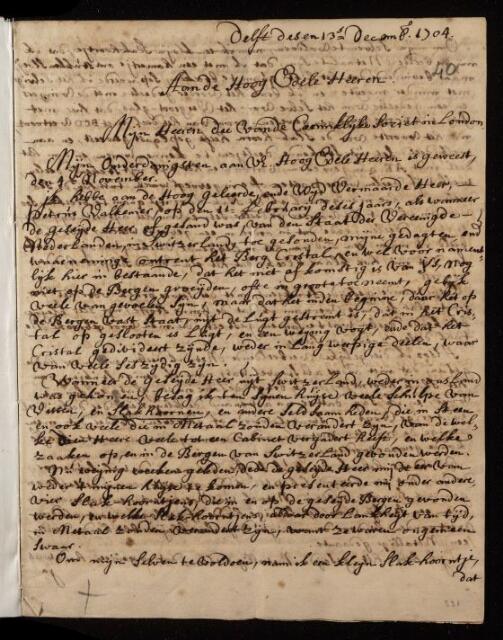 Delft desen 13e Decemb. 1704.
40
Aan de Hoog Edele Heeren
Mijn Heeren die van de Coninklijke Societ in London
Mijn Onderdanigsten aan UE Hoog Edele Heeren is geweest,
den 4e November.
Ik hebbe aan de Hoog geleerde, ende Wijd Vermaarde Heer,
Petrus Valkenier, op den Februarij deses jaars, als wanneer
de geseijde Heer afgesand was, van den Staat der Vereenigde
Nederlanden, in Switzerland, toe gesonden, mijne gedagten, ende
waarneminge ontrent het Berg Cristal, en wel voor nament-
lijk hier in bestaande, dat het niet af komstig is van IJs, nog
niet, op de Bergen groeijden, ofte in groote toe neemt, gelijk
veele van gevoelen sijn, maar dat het inden beginne, daar het op
de Bergen vast staat, met de Lugt gestremt is, dat in het Cris-
tal op geslooten is Lugt, en een weijnig vogt, ende dat het
Cristal gedivideert zijnde, weder in lang werpige deelen, waar
van veele ses zijdig zijn.
Wanneer de Geseijde Heer uijt Switzerland, weder in ons Land
was gekomen, besag ik ten sijnen Huijse veele Schulpe van
Vissen, en Slak-hoornen, en andere Seldsaamheden, die in Steen
en ook veele die in Metaal zouden verandert zijn, van de wel-
ke dien Heere veele tot een Cabinet vergadert heeft, en welke
zaaken op, en in de Bergen van Switzerland gevonden werden.
Nu weijnig weeken geleden, dede de geseijde Heer mij de eer van
weder t mijnen Huijse te komen, en presenteerde mij onder andere,
vier Slak-hoorntjens, die in en op de geseijde Bergen gevonden
werden, en welke Slak-hoorntjens, al door lankheijt van tijd,
in Metaal zouden verandert zijn, want ze waren ongemeen
swaar.
Om mijn selven te voldoen, nam ik een kleijn Slak-hoorntje,
dat